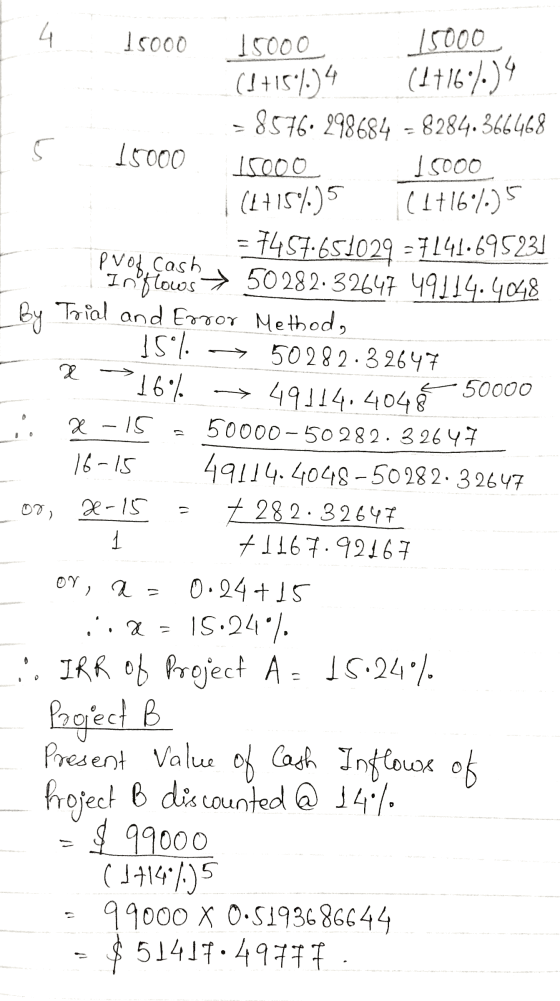 4 15000 15000/(1+15%)4 15000/(1+16%)4
= 8576.298684 = 8284.366468
5 15000 15000/(1+15%)5 15000/(1+16%)5
= 7457.651029 = 7141.695231
PV of Cash Inflows → 50282.32647 49114.4048
By Trial and Error Method,
15% → 50282.32647
x →
16% → 49114.4048 ← 50000
∴ x - 15 / 16 - 15 = 50000 - 50282.32647 / 49114.4048 - 50282.32647
or, x - 15 / 1 = + 282.32647 / + 1167.92167
or, x = 0.24 + 15
∴ x = 15.24%
∴ IRR of Project A = 15.24%.
Project B
Present Value of Cash Inflows of
Project B discounted @ 14%.
= $ 99000 / (1+14%)5
= 99000 X 0.5193686644
= $ 51417.49777.